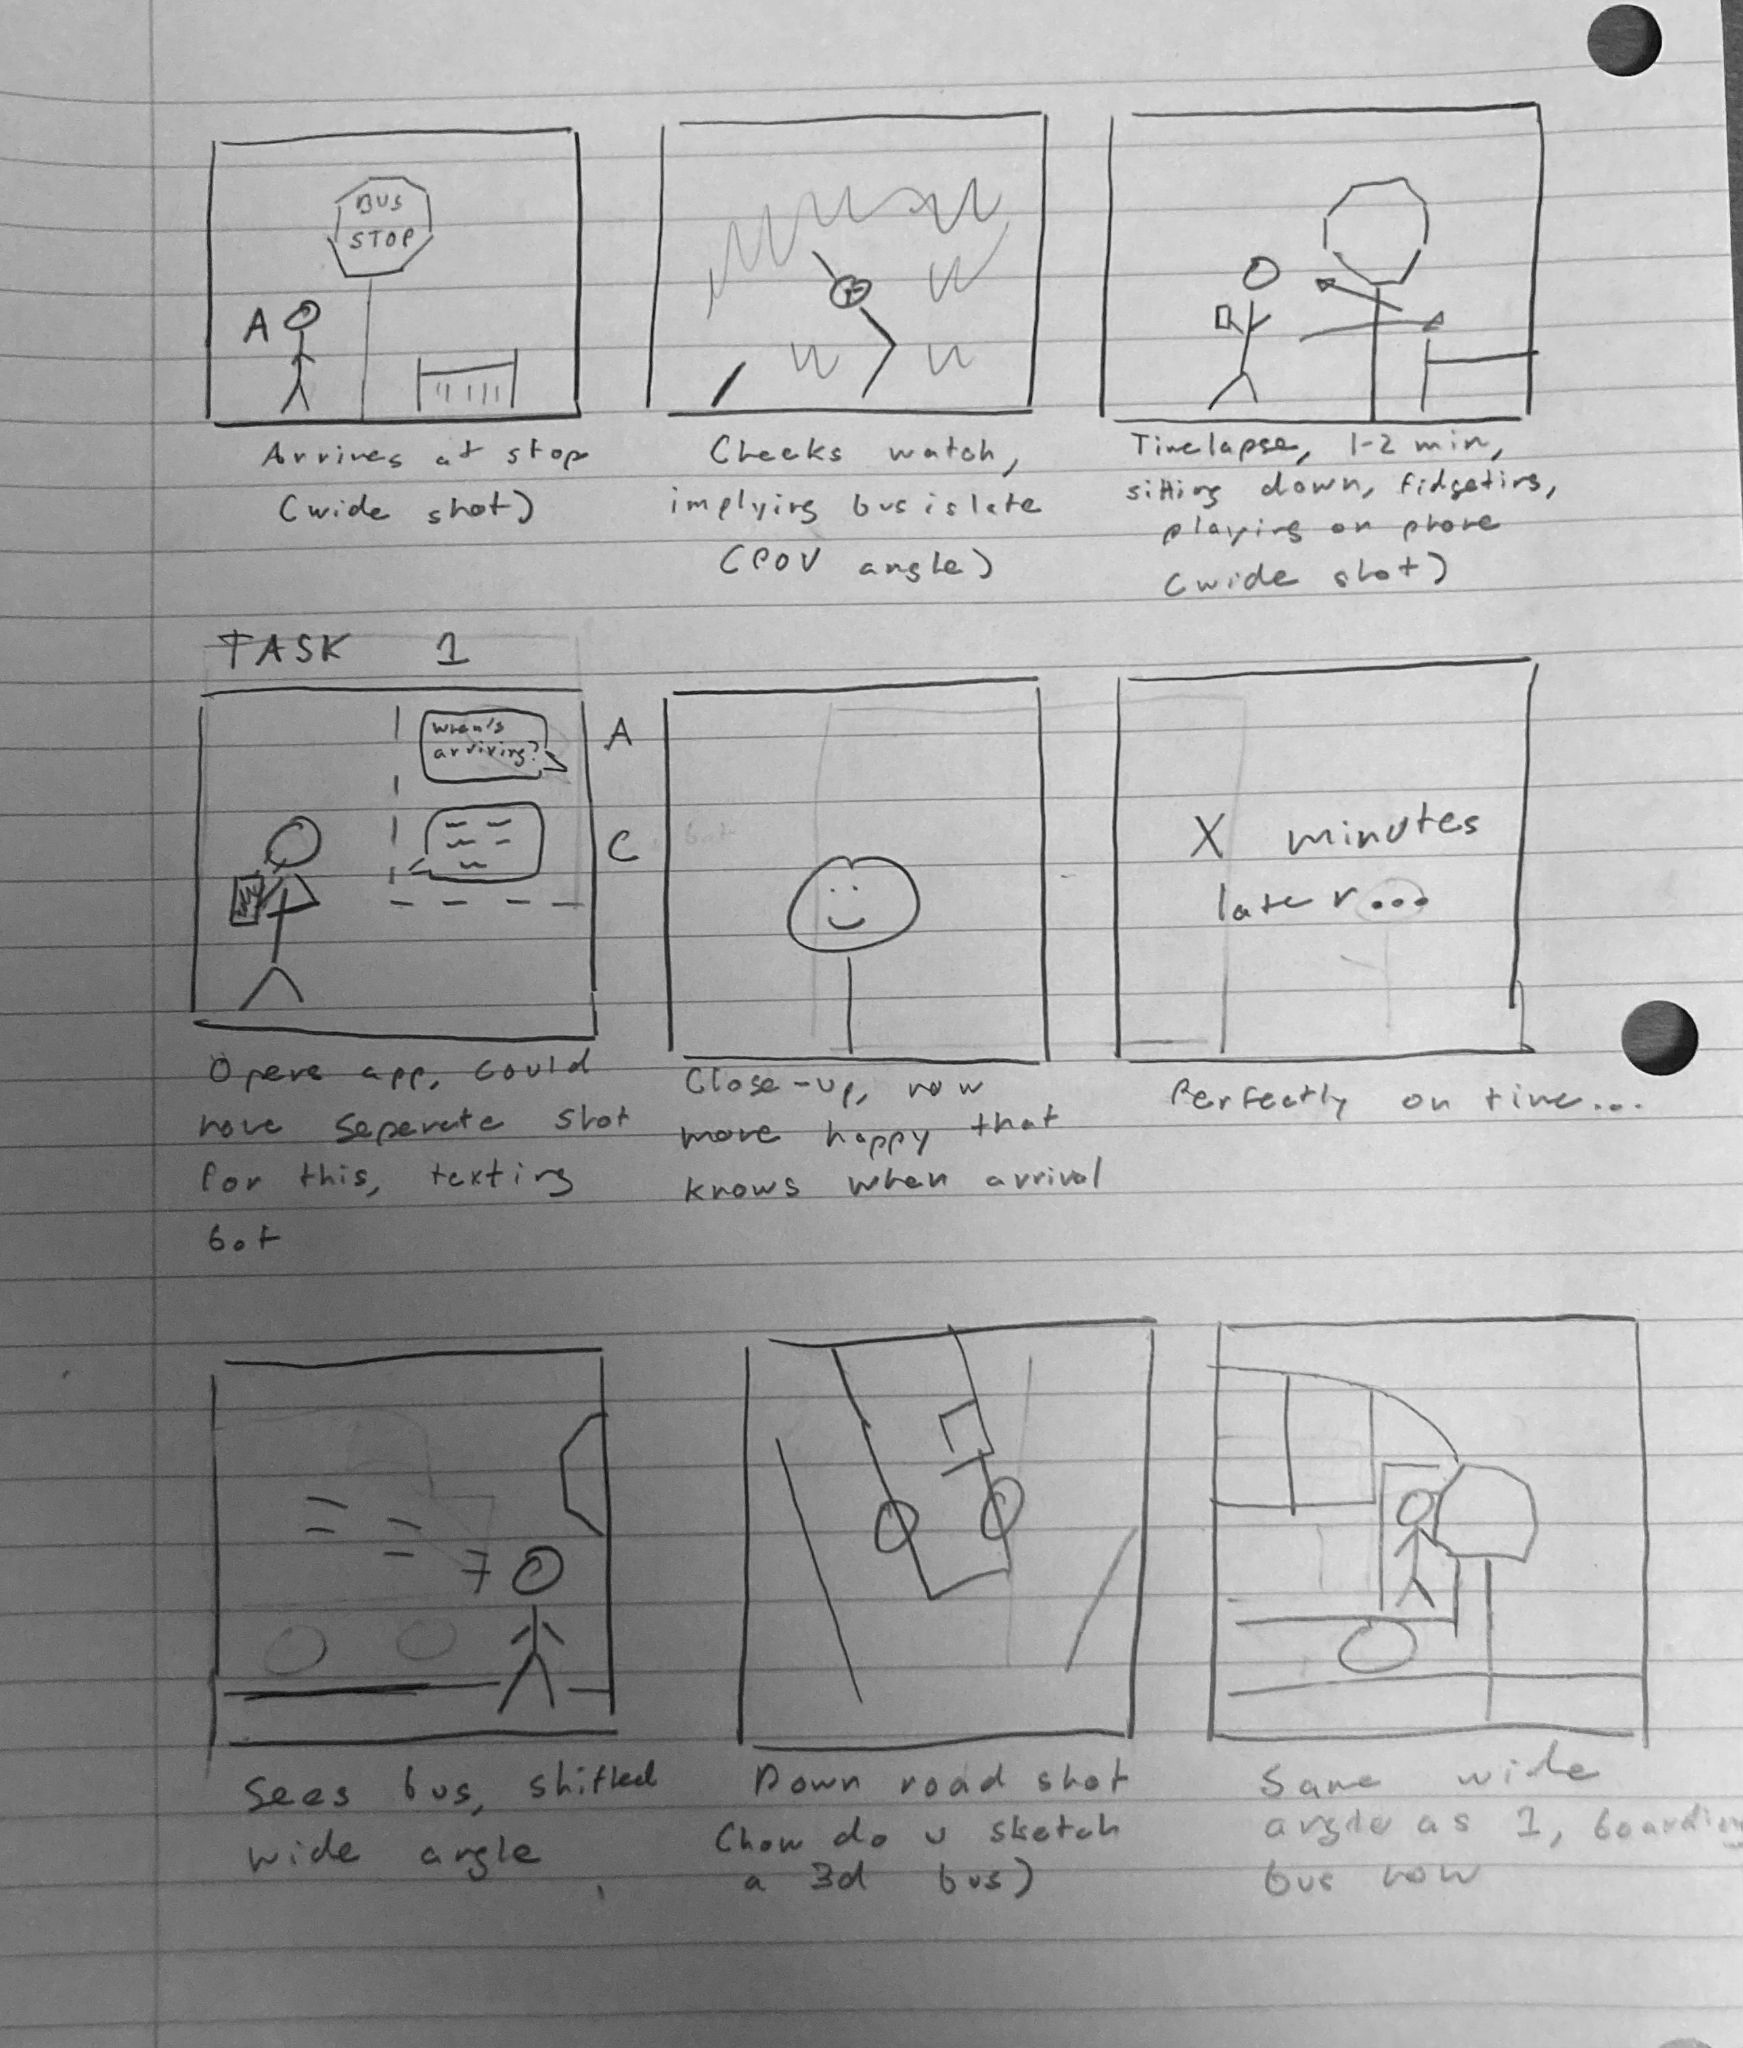 BUS
STOP
A
Arrives at stop
(wide shot)
Checks watch,
implying bus is late
(POV angle)
Timelapse, 1-2 min,
sitting down, fidgeting,
playing on phone
(wide shot)
TASK 1
when's
arriving?
A
C
Opens app, could
have seperate shot
for this, texting
bot
Close-up, now
more happy that
knows when arrival
X minutes
later...
Perfectly on time...
Sees bus, shifted
wide angle
Down road shot
(how do u sketch
a 3d bus)
Same wide
angle as 1, boarding
bus now